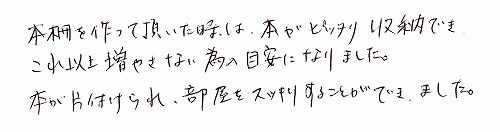 本棚を作って頂いた時は、本がピッタリ収納でき
これ以上増やさない為の目安になりました。
本が片付けられ、部屋をスッキリすることができました。